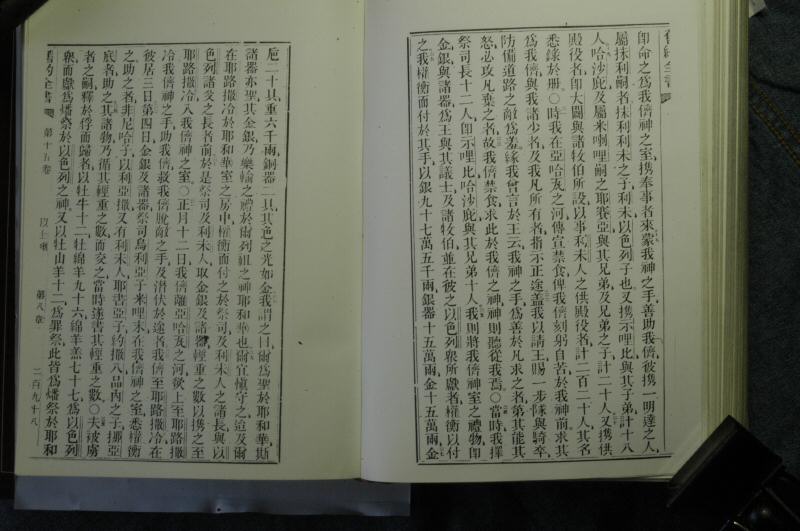 舊約全書
即命之爲我儕神之室、携奉事者來、蒙我神之手善助我儕、彼携一明達之人、
屬抹利嗣者、抹利利未之子、利未以色列子也、又携示哩比與其子弟計十八
人、哈沙庇及屬米喇哩嗣之耶賽亞、與其兄弟及兄弟之子、計二十人、又携供
殿役名、即大闢與諸牧伯所設、以事利未人之供殿役者、計二百二十人、其名
悉錄於册〇時我在亞哈瓦之河、傳宣禁食、俾我儕刻躬自苦於我神前、求其
爲我儕與我諸少者、及我凡所有者、指示正途、蓋我以請王賜一步隊與騎卒、
防備道路之敵爲羞、緣我曾言於王云、我神之手、爲善於凡求之者、第其能其
怒、必攻凡棄之者、故我儕禁食、求此於我儕之神、神則聽從我焉〇當時我擇
祭司長十二人、即示哩比哈沙庇與其兄弟十人、我則將我儕神室之禮物、即
金、銀、與諸器、爲王與其議士及諸牧伯、並在彼之以色列衆所獻者、權衡以付
之、我權衡而付於其手、以銀九十七萬五千兩、銀器十五萬兩、金十五萬兩、金
巵二十、其重六千兩、銅器二具、其色之光如金、我謂之曰、爾爲聖於耶和華、斯
諸器亦聖、其金銀乃樂輸之禮於爾列祖之神耶和華也、爾宜愼守之、迨及爾
在耶路撒冷、於耶和華室之房中、權衡而付之於祭司及利未人之諸長、與以
色列諸支之長者前、於是祭司及利未人取金銀及諸器輕重之數、以携之至
耶路撒冷、入我儕神之室〇正月十二日、我儕離亞哈瓦之河、欲上至耶路撒
冷、我儕神之手助我儕、救我儕脫敵之手、及潛伏於途者、我儕至耶路撒冷、在
彼居三日、第四日、金銀及諸器、祭司烏利亞子米哩末、在我儕神之室、悉權衡
之、助之者、非尼哈子以利亞撒、又有利未人耶書亞子約撒八、品內之子挪亞
底者助之、其諸物乃循其輕重之數而交之、當時遂書其輕重之數〇夫被虜
者之嗣、釋於俘而歸者、以牡牛十二、牡綿羊九十六、綿羊羔七十七、爲以色列
衆而獻爲燔祭於以色列之神、又以牡山羊十二、爲罪祭、此皆爲燔祭於耶和
舊約全書 第十五卷 以士喇 第八章 二百九十八